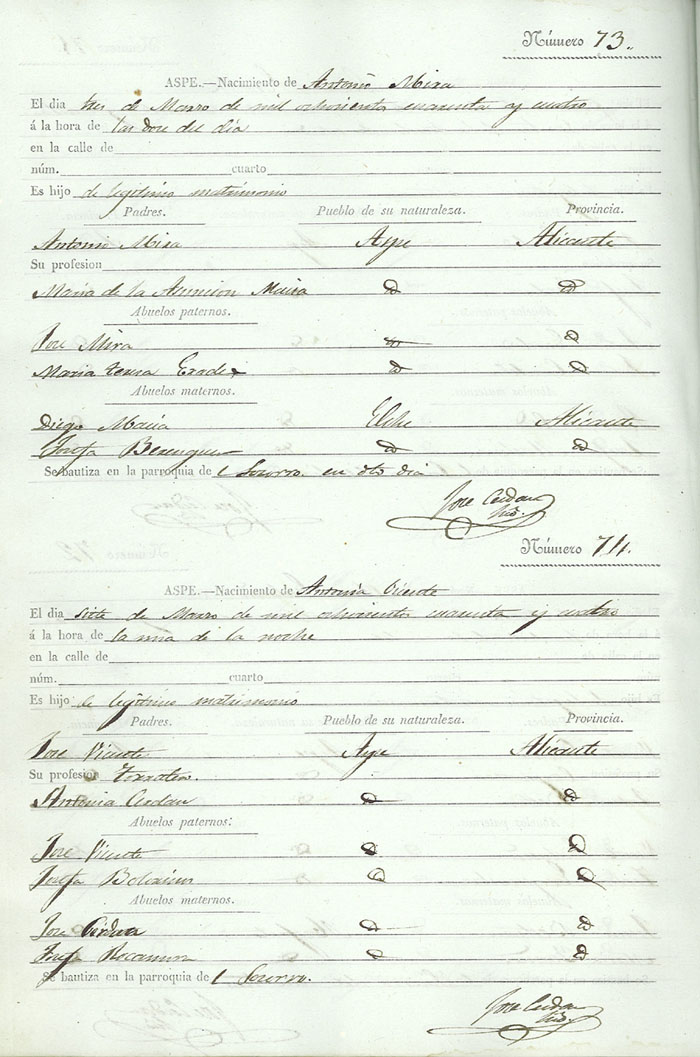 Número 73.
ASPE.—Nacimiento de Antonio Mira
El dia tres de Marzo de mil ochocientos cuarenta y cuatro
á la hora de las doce del día
en la calle de
núm. cuarto
Es hijo de legitimo matrimonio
Padres. Pueblo de su naturaleza. Provincia.
Antonio Mira Aspe Alicante
Su profesion
Maria de la Asuncion Macia
Abuelos paternos.
Jose Mira
Maria Teresa
Abuelos maternos.
Diego Macia Elche Alicante
Josefa Berenguer
Se bautiza en la parroquia de l Socorro. en dho dia
Jose Cerdan
Número 74.
ASPE.—Nacimiento de Antonia Vicente
El dia siete de Marzo de mil ochocientos cuarenta y cuatro
á la hora de la una de la noche
en la calle de
núm. cuarto
Es hijo de legitimo matrimonio
Padres. Pueblo de su naturaleza. Provincia.
Jose Vicente Aspe Alicante
Su profesion
Antonia Cerdan
Abuelos paternos:
Jose Vicente
Josefa
Abuelos maternos.
Jose Cerdan
Josefa Rocamora
Se bautiza en la parroquia de l Socorro.
Jose Cerdan